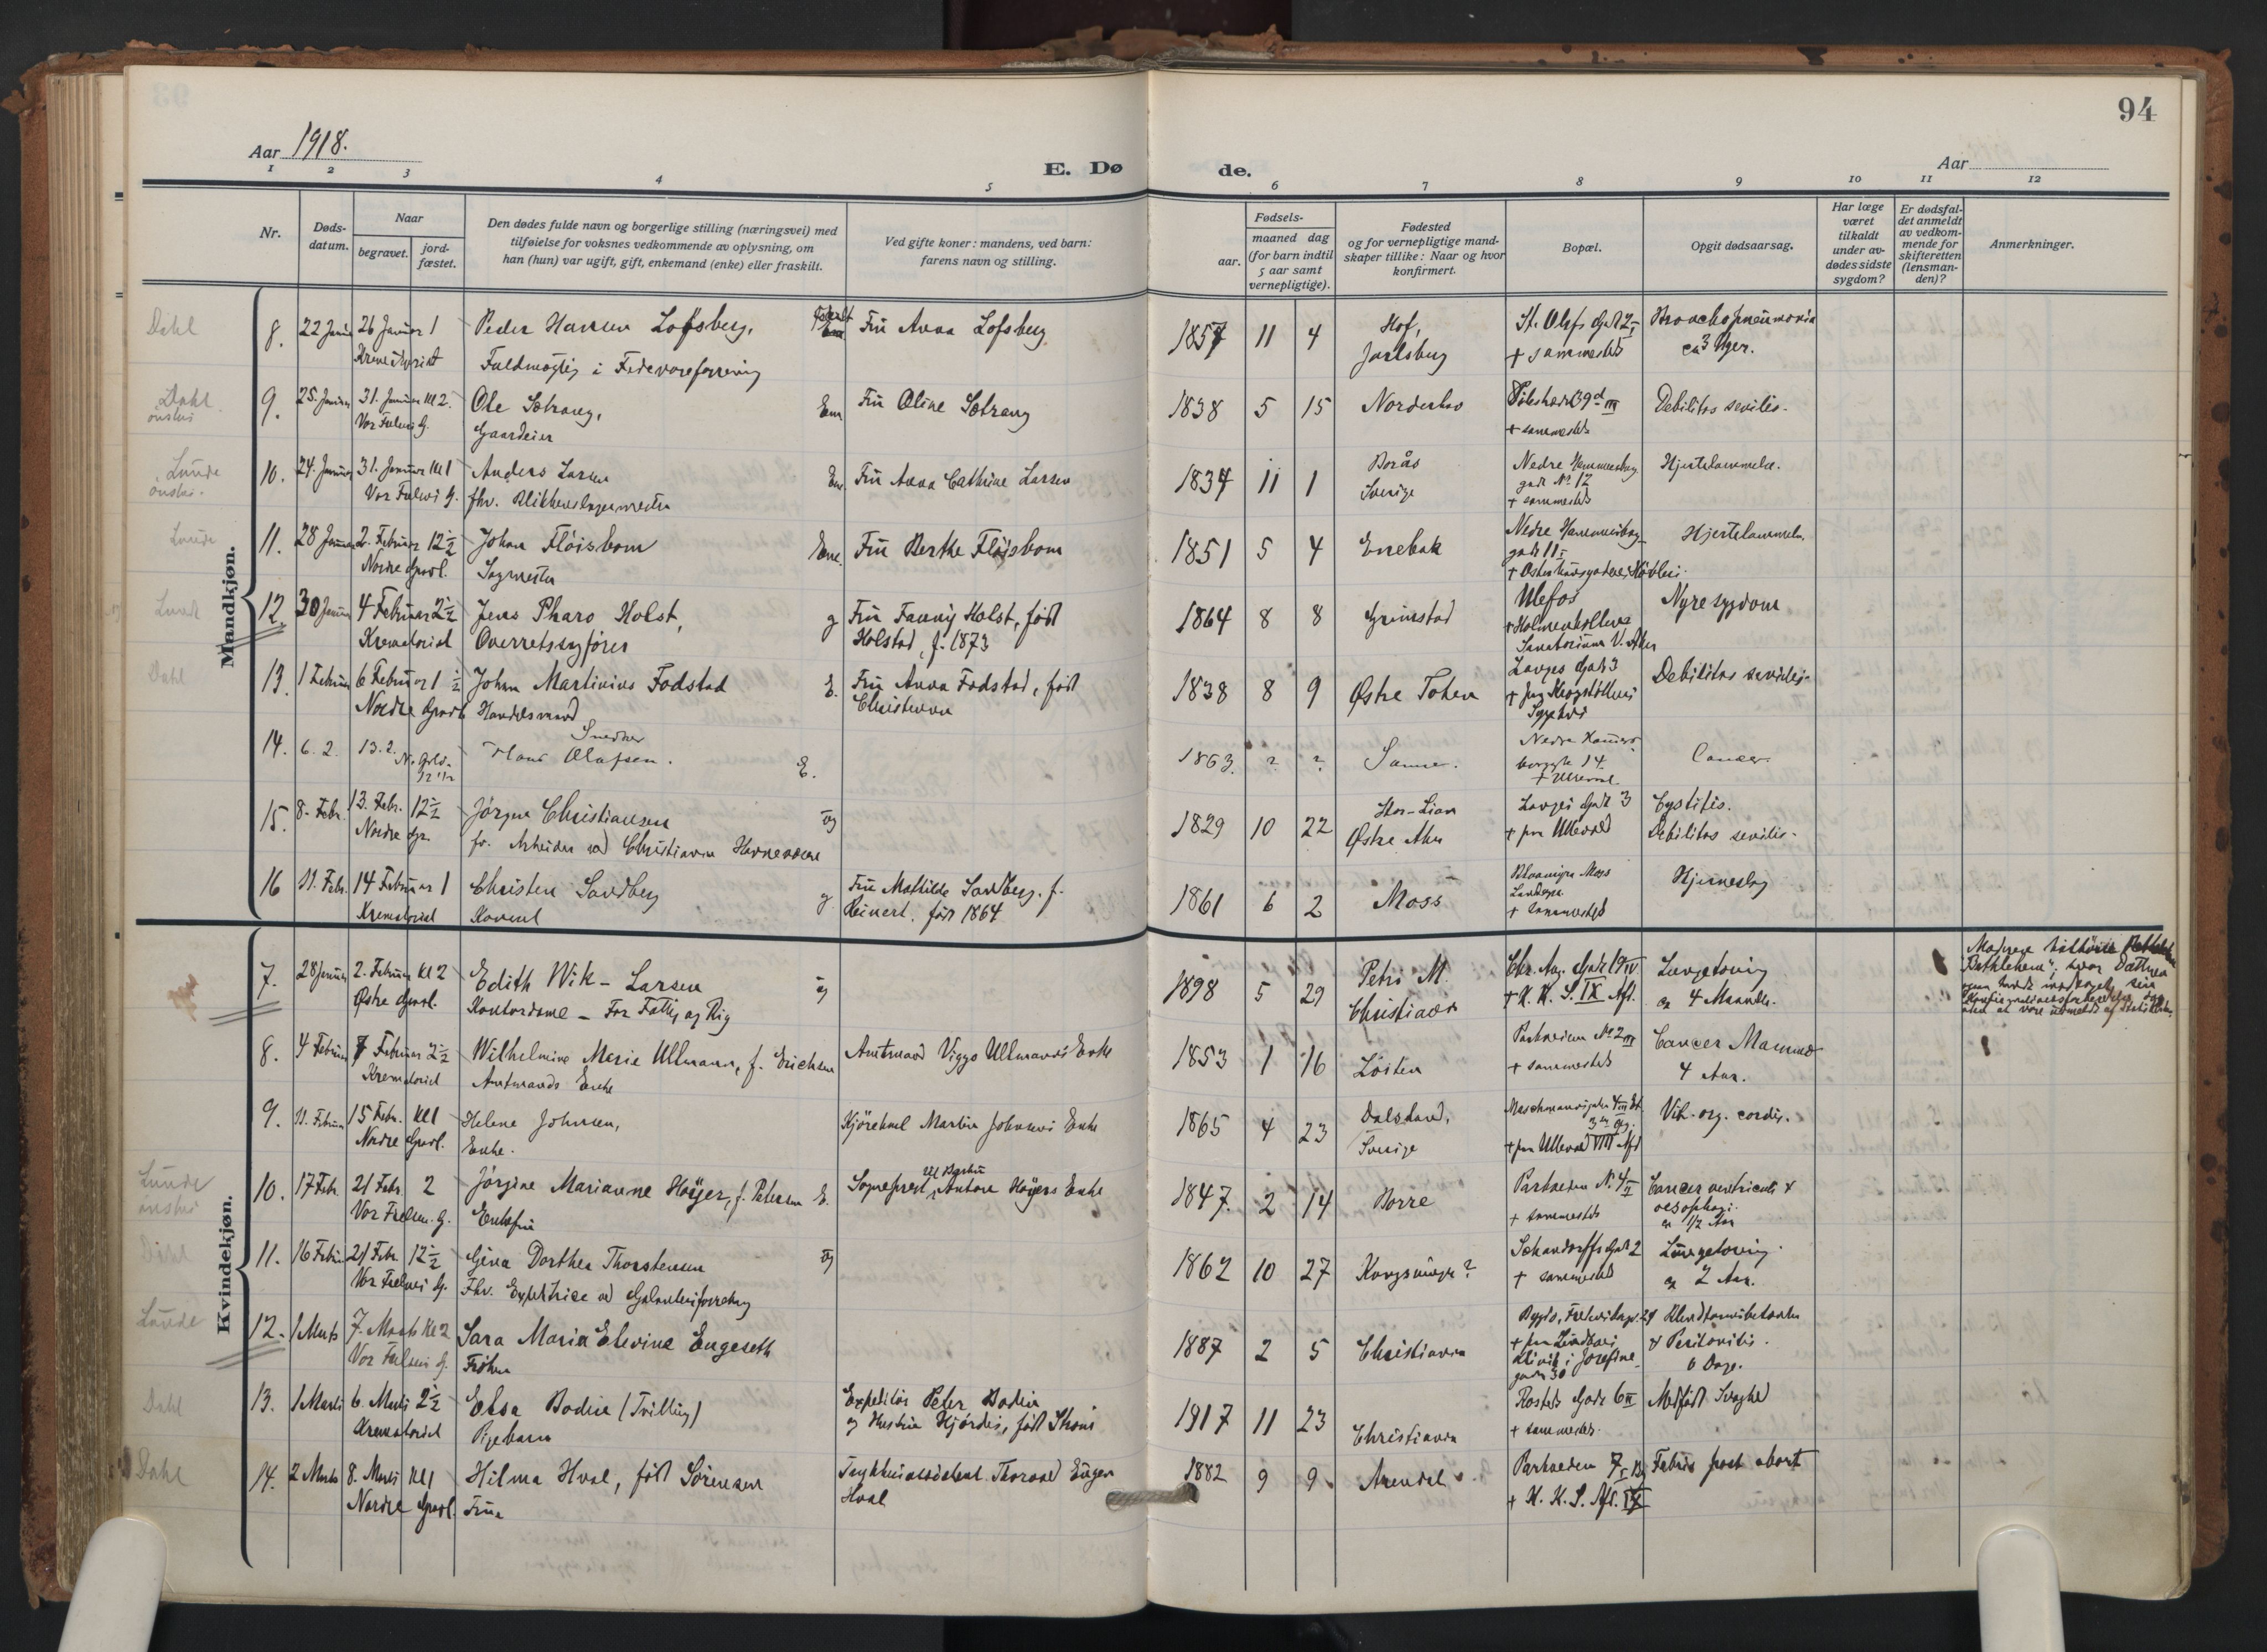 94
Aar 1918.
E. Dø de.
Aar
1 2 3 4 5 6 7 8 9 10 11 12
Nr.
Døds-
datum.
Naar
begravet.
jord-
fæstet.
Den dødes fulde navn og borgerlige stilling (næringsvei) med
tilføielse for voksnes vedkommende av oplysning, om
han (hun) var ugift, gift, enkemand (enke) eller fraskilt.
Ved gifte koner: mandens, ved barn:
farens navn og stilling.
Fødsels-
aar.
maaned dag
(for barn indtil
5 aar samt
vernepligtige).
Fødested
og for vernepligtige mand-
skaper tillike: Naar og hvor
konfirmert.
Bopæl.
Opgit dødsaarsag.
Har læge
været
tilkaldt
under av-
dødes sidste
sygdom?
Er dødsfal-
det anmeldt
av vedkom-
mende for
skifteretten
(lensman-
den)?
Anmerkninger.
Mandkjøn.
Dahl
8. 22 26 Januar 1 Peder Hansen Lofsberg, Em Fru Anna Lofsberg 1857 11 4 Hof, St. Olafs Gade 2 Bronchopneumonia
Fuldmægtig i Jarlsberg + sammesteds ca 3 Uger.
Dahl
ønskes
9. 25. Januar 31. Januar Kl 2. Ole Sætrang, Em Fru Oline Sætrang 1838 5 15 Norderhov 39 III Debilitas senilis.
Vor Frelsers G. Gaardeier + sammesteds
Lunde
ønskes.
10. 24. Januar 31. Januar Kl 1 Anders Larsen Em. Fru Anna Cathrine Larsen 1834 11 1 Borås Nedre Hammersborg Hjertelammelse.
Vor Frelsers G. fhv. Blikkenslagermester Sverige gade No 12
+ sammesteds
Lunde
11. 28 Januar 2. Februar 12½ Johan Fløisbom Em. Fru Berthe Fløisbom 1851 5 4 Enebak Nedre Hammersborg- Hjertelammelse.
Nordre Gravl. Sagmester gade 11 I
Lunde
12. 30 Januar 4 Februar 2½ Jens Pharo Holst, g Fru Fanny Holst, født 1864 8 8 Grimstad Ulefos Nyresygdom
Krematoriet Overretssagfører Holstad, f. 1873 + Holmenkollens
Sanatorium V. Aker
Dahl
13. 1 Februar 6 Februar 1½ Johan Martinius Fodstad E. Fru Anna Fodstad, født 1838 8 9 Østre Toten Langes Gade 3 Debilitas senilis.
Nordre Gravl. Handelsmand Christensen + Krogstøttens
Sygehus
14. 6. 2. 13. 2. Snedker
Hans Olafsen. E. 1863. ? ? Sanne. Nedre Hammers- Cancer.
N. Grld. borggt. 14.
12 1/2 + Ullevaal
15. 8. Febr. 13. Febr. 12½ Jørgen Christiansen ug 1829 10 22 Stor-Lian Langes Gade 3 Cystitis.
Nordre Gr. fv. Arbeider ved Christiania Havnevæsen Østre Aker + paa Ullevaal Debilitas senilis.
16 11. Febr. 14 Februar 1 Christen Sandberg g. Fru Mathilde Sandberg. f. 1861 6 2 Moss Moss Hjerneslag
Krematoriet Konsul Reinert. født 1864 + sammesteds
Kvindekjøn.
7. 28 Januar 2. Februar Kl 2 Edith Wik-Larsen ug 1898 5 29 Petri M. Chr. Aug. Gade 19 IV Lungetæring
Østre Gravl. Kontordame - For Fattig og Rig Christiania + K. K. S. IX Afd. ca 4 Maaneder.
8. 4 Februar 7 Februar 2½ Wilhelmine Marie Ullmann, f. Erichsen Amtmand Viggo Ullmanns Enke 1853 1 16 Løiten Parkveien No 2 III Cancer Mammae
Krematoriet Amtmands Enke + sammesteds 4 Aar.
9. 11. Februar 15 Febr. Kl 1 Helene Johnsen, Kjørekarl Martin Johnsens Enke 1865 4 23 Dalsland, Vit. org. cordis.
Nordre Gravl. Enke. Sverige + paa Ullevaal VIII Afd
Lunde
ønskes
10. 17 Febr. 21 Febr 2 Jørgine Marianne Høyer, f. Petersen E. Sogneprest Antone Høyers Enke 1847. 2 14 Borre Parkveien N. 4 II Cancer ventriculi &
Vor Frelsers G. Enkefru + sammesteds oesophagi.
ca 1/2 Aar
Dahl
11. 16 Febr 21 Febr. 12½ Gina Dorthea Thorstensen ug 1862 10 27 Kongsvinger? Schandorffs Gade 2 Lungetæring.
Vor Frelsers G. Fhv. Expeditrice ved Galanteriforretning + sammesteds ca 2 Aar.
Lunde
12. 1 Marts 7. Marts Kl 2 Sara Maria Elevine Engeseth 1887 2 5 Christiania
Vor Frelsers G. Frøken & Peritonitis.
Klinik i Josefine 6 Dage.
gade 30
Dahl
13. 1 Marts 6. Marts 2½ Elsa Bodin (Tvilling) Expeditør Peter Bodin 1917 11 23 Christiania Rosteds Gade 6 II Medfødt Svaghed
Krematoriet Pigebarn og Hustru Hjørdis, født + sammesteds.
Dahl
14. 2 Marts 8. Marts Kl 1 Hilma Hval, født Sørensen Thorvald Eugen 1882 9 9. Arendal Parkveien 7 Febris post abort
Nordre Gravl. Frue Hval + K. K. S. Afd. IX